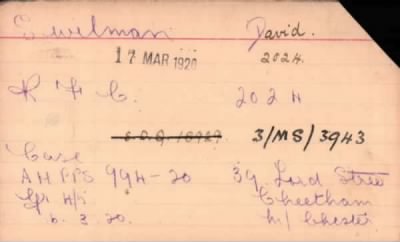 Swelman David.
17 MAR 1920 2024.
R F C. 2024
S.O.G. 16929 3/MS/3943
Case
AHFPS 994-20 39 Lord Street
Cheetham
6. 3. 20. M/Chester